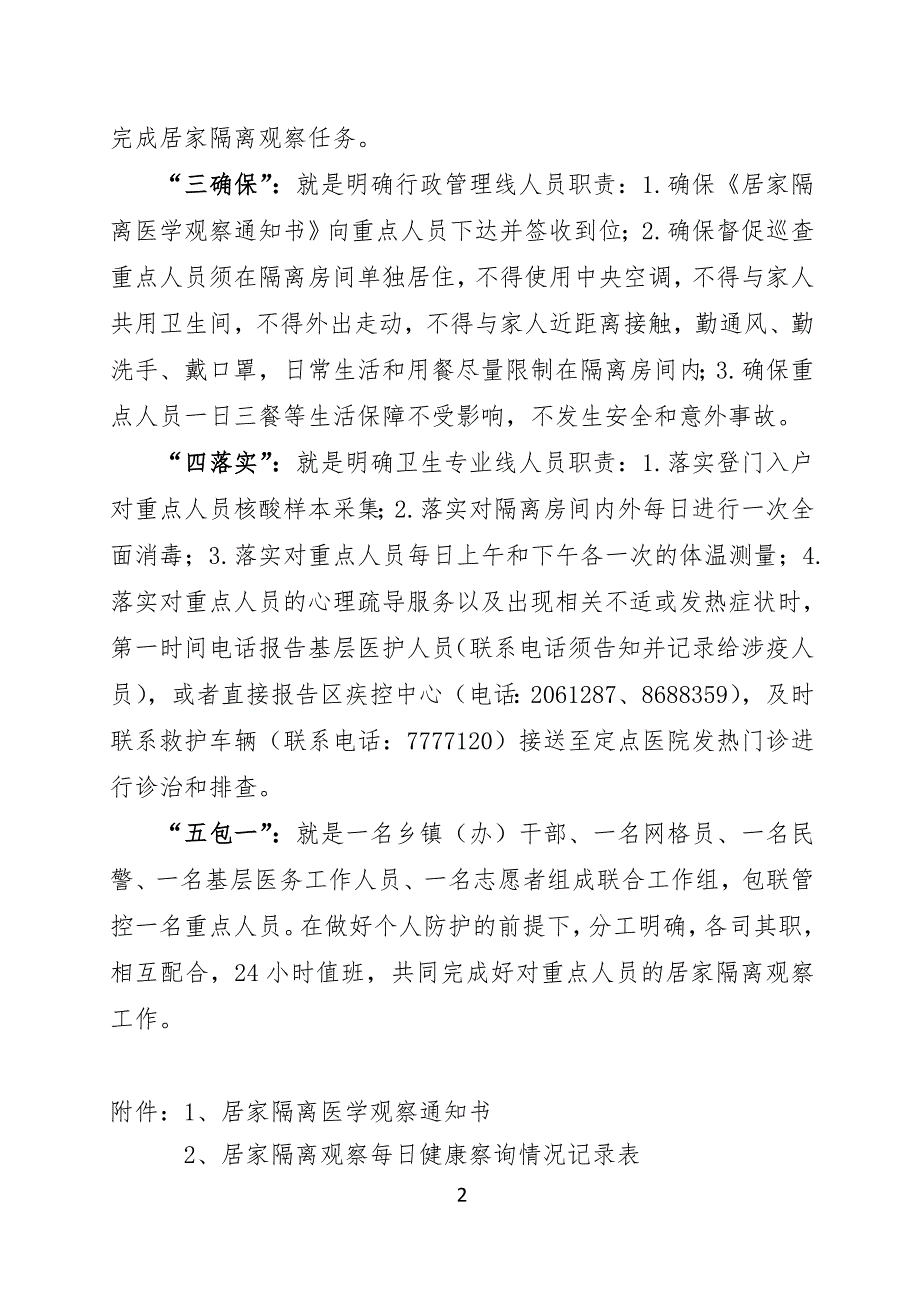 完成居家隔离观察任务。
“三确保”：就是明确行政管理线人员职责：1.确保《居家隔
离医学观察通知书》向重点人员下达并签收到位；2.确保督促巡查
重点人员须在隔离房间单独居住，不得使用中央空调，不得与家人
共用卫生间，不得外出走动，不得与家人近距离接触，勤通风、勤
洗手、戴口罩，日常生活和用餐尽量限制在隔离房间内；3.确保重
点人员一日三餐等生活保障不受影响，不发生安全和意外事故。
“四落实”：就是明确卫生专业线人员职责：1.落实登门入户
对重点人员核酸样本采集；2.落实对隔离房间内外每日进行一次全
面消毒；3.落实对重点人员每日上午和下午各一次的体温测量；4.
落实对重点人员的心理疏导服务以及出现相关不适或发热症状时，
第一时间电话报告基层医护人员（联系电话须告知并记录给涉疫人
员），或者直接报告区疾控中心（电话：2061287、8688359），及时
联系救护车辆（联系电话：7777120）接送至定点医院发热门诊进
行诊治和排查。
“五包一”：就是一名乡镇（办）干部、一名网格员、一名民
警、一名基层医务工作人员、一名志愿者组成联合工作组，包联管
控一名重点人员。在做好个人防护的前提下，分工明确，各司其职，
相互配合，24小时值班，共同完成好对重点人员的居家隔离观察
工作。
附件：1、居家隔离医学观察通知书
2、居家隔离观察每日健康察询情况记录表
2